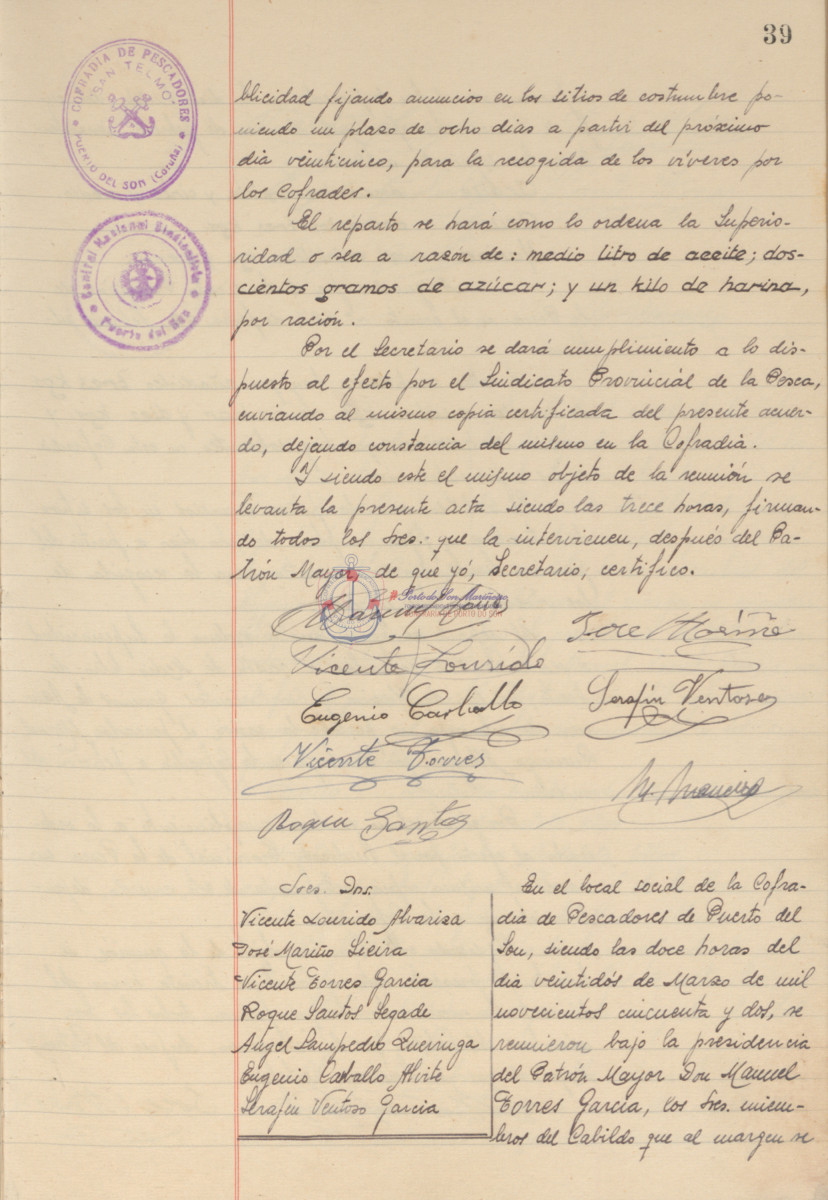 39
COFRADIA DE PESCADORES
"SAN TELMO"
PUERTO DEL SON (Coruña)
Central Nacional Sindicalista
Puerto del Son
blicidad fijando anuncios en los sitios de costumbre po-
niendo un plazo de ocho dias a partir del próximo
dia veinticinco, para la recogida de los víveres por
los Cofrades.
El reparto se hará como lo ordena la Superio-
ridad o sea a razón de: medio litro de aceite; dos-
cientos gramos de azúcar; y un kilo de harina,
por ración.
Por el Secretario se dará cumplimiento a lo dis-
puesto al efecto por el Sindicato Provincial de la Pesca,
enviando al mismo copia certificada del presente acuer-
do, dejando constancia del mismo en la Cofradía.
Y siendo este el mismo objeto de la reunión se
levanta la presente acta siendo las trece horas, firman-
do todos los Sres. que la intervienen, despues del Pa-
trón Mayor de que yó, Secretario, certifico.
Porto do Son Mariñeiro
José Mariño
Vicente Lourido
Eugenio Carballo
Serafin Ventoso
Vicente Torres
Roque Santos
Sres. Dns.
Vicente Lourido Alvariza
José Mariño Sieira
Vicente Torres Garcia
Roque Santos Segade
Angel Sampedro Queiruga
Eugenio Carballo Alvite
Serafin Ventoso Garcia
En el local social de la Cofra-
día de Pescadores de Puerto del
Son, siendo las doce horas del
día veintidós de Marzo de mil
novecientos cincuenta y dos, se
reunieron bajo la presidencia
del Patrón Mayor Don Manuel
Torres Garcia, los Sres. miem-
bros del Cabildo que al margen se